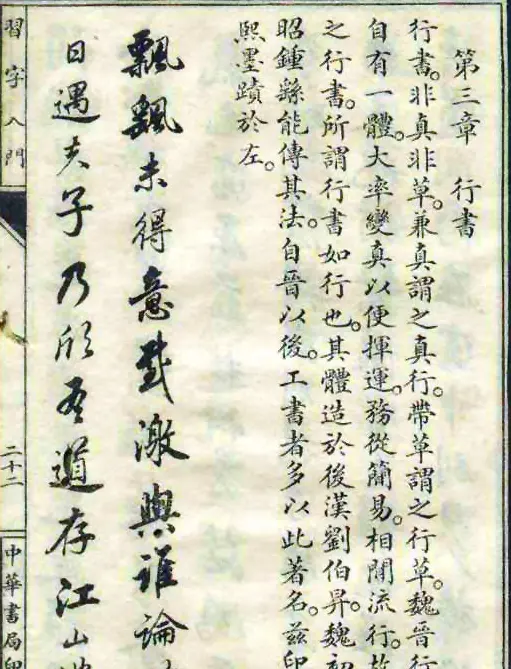 第三章 行書
行書。非真非草。兼真謂之真行。帶草謂之行草。魏晉行
自有一體。大率變真以便揮運。務從簡易。相間流行。故
之行書。所謂行書如行也。其體造於後漢劉伯昇。魏初
昭鍾繇能傳其法。自晉以後。工書者多以此著名。茲印
熙墨蹟於左。
飄飄未得意感激與誰論
日遇夫子乃欣吾道存江山
習字入門
二十二
中華書局印